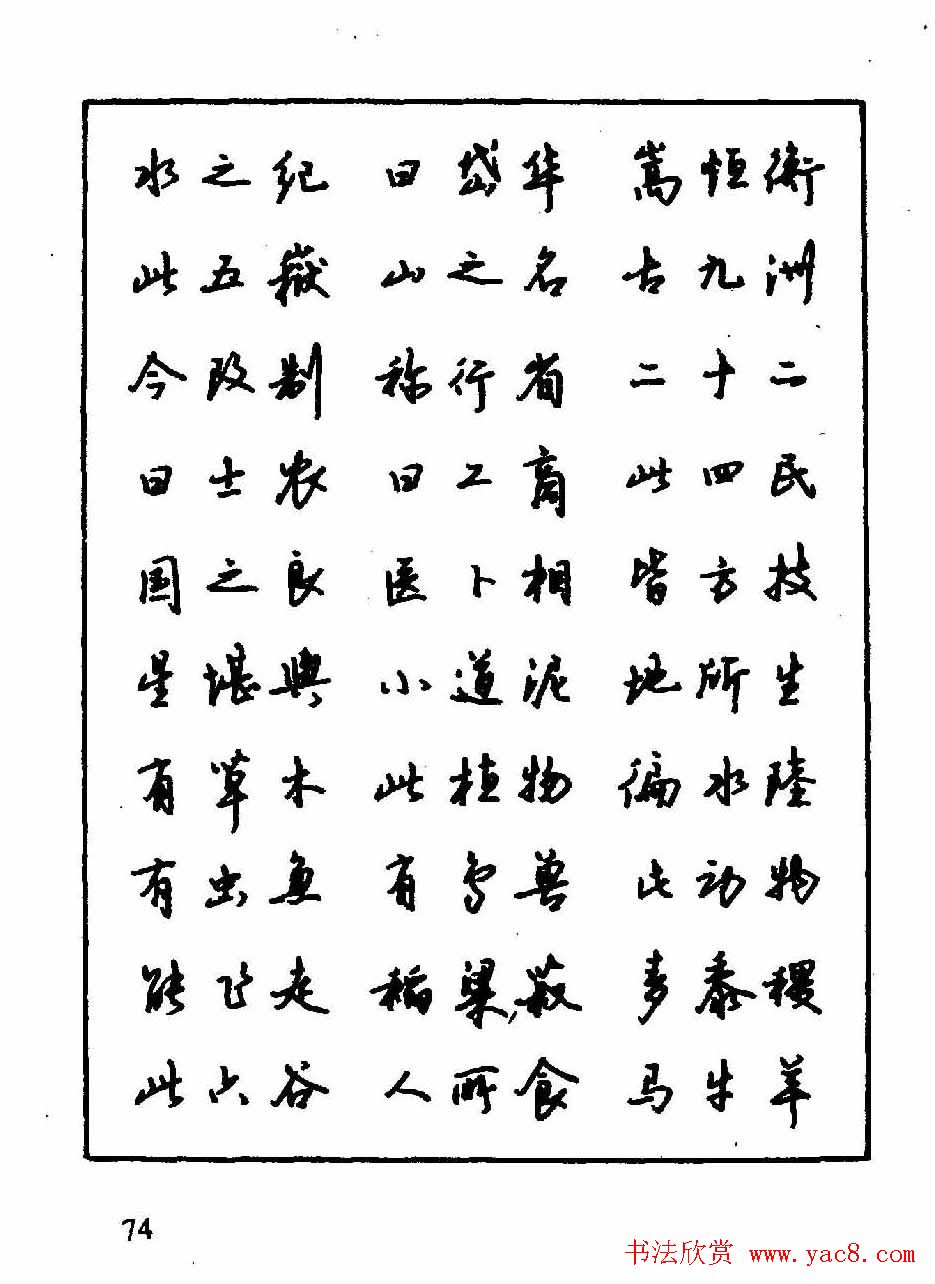 水之纪 曰岱华 嵩恒衡
此五嶽 山之名 古九洲
今改制 称行省 二十二
曰士农 曰工商 此四民
国之良 医卜相 皆方技
星堪舆 小道泥 地所生
有草木 此植物 徧水陆
有虫鱼 有鸟兽 此动物
能飞走 稻粱菽 麦黍稷
此六谷 人所食 马牛羊
74
书法欣赏 www.yac8.com